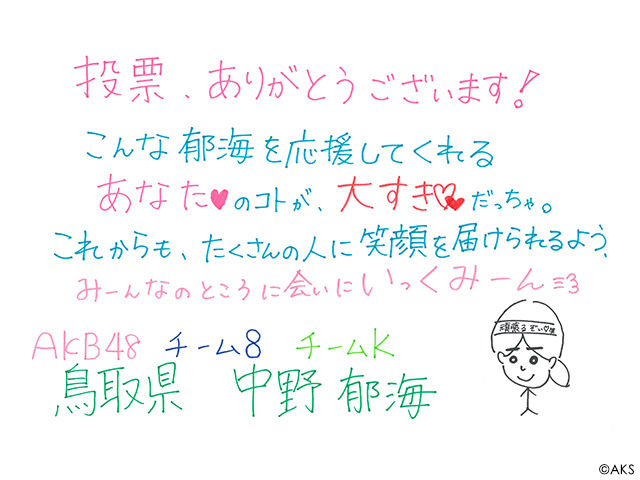 投票、ありがとうございます!
こんな郁海を応援してくれる
あなた♥のコトが、大すき♡♥だっちゃ。
これからも、たくさんの人に笑顔を届けられるよう、
みーんなのところに会いにいっくみーん
頑張るぞい♡
AKB48 チーム8 チームK
鳥取県 中野郁海
©AKS